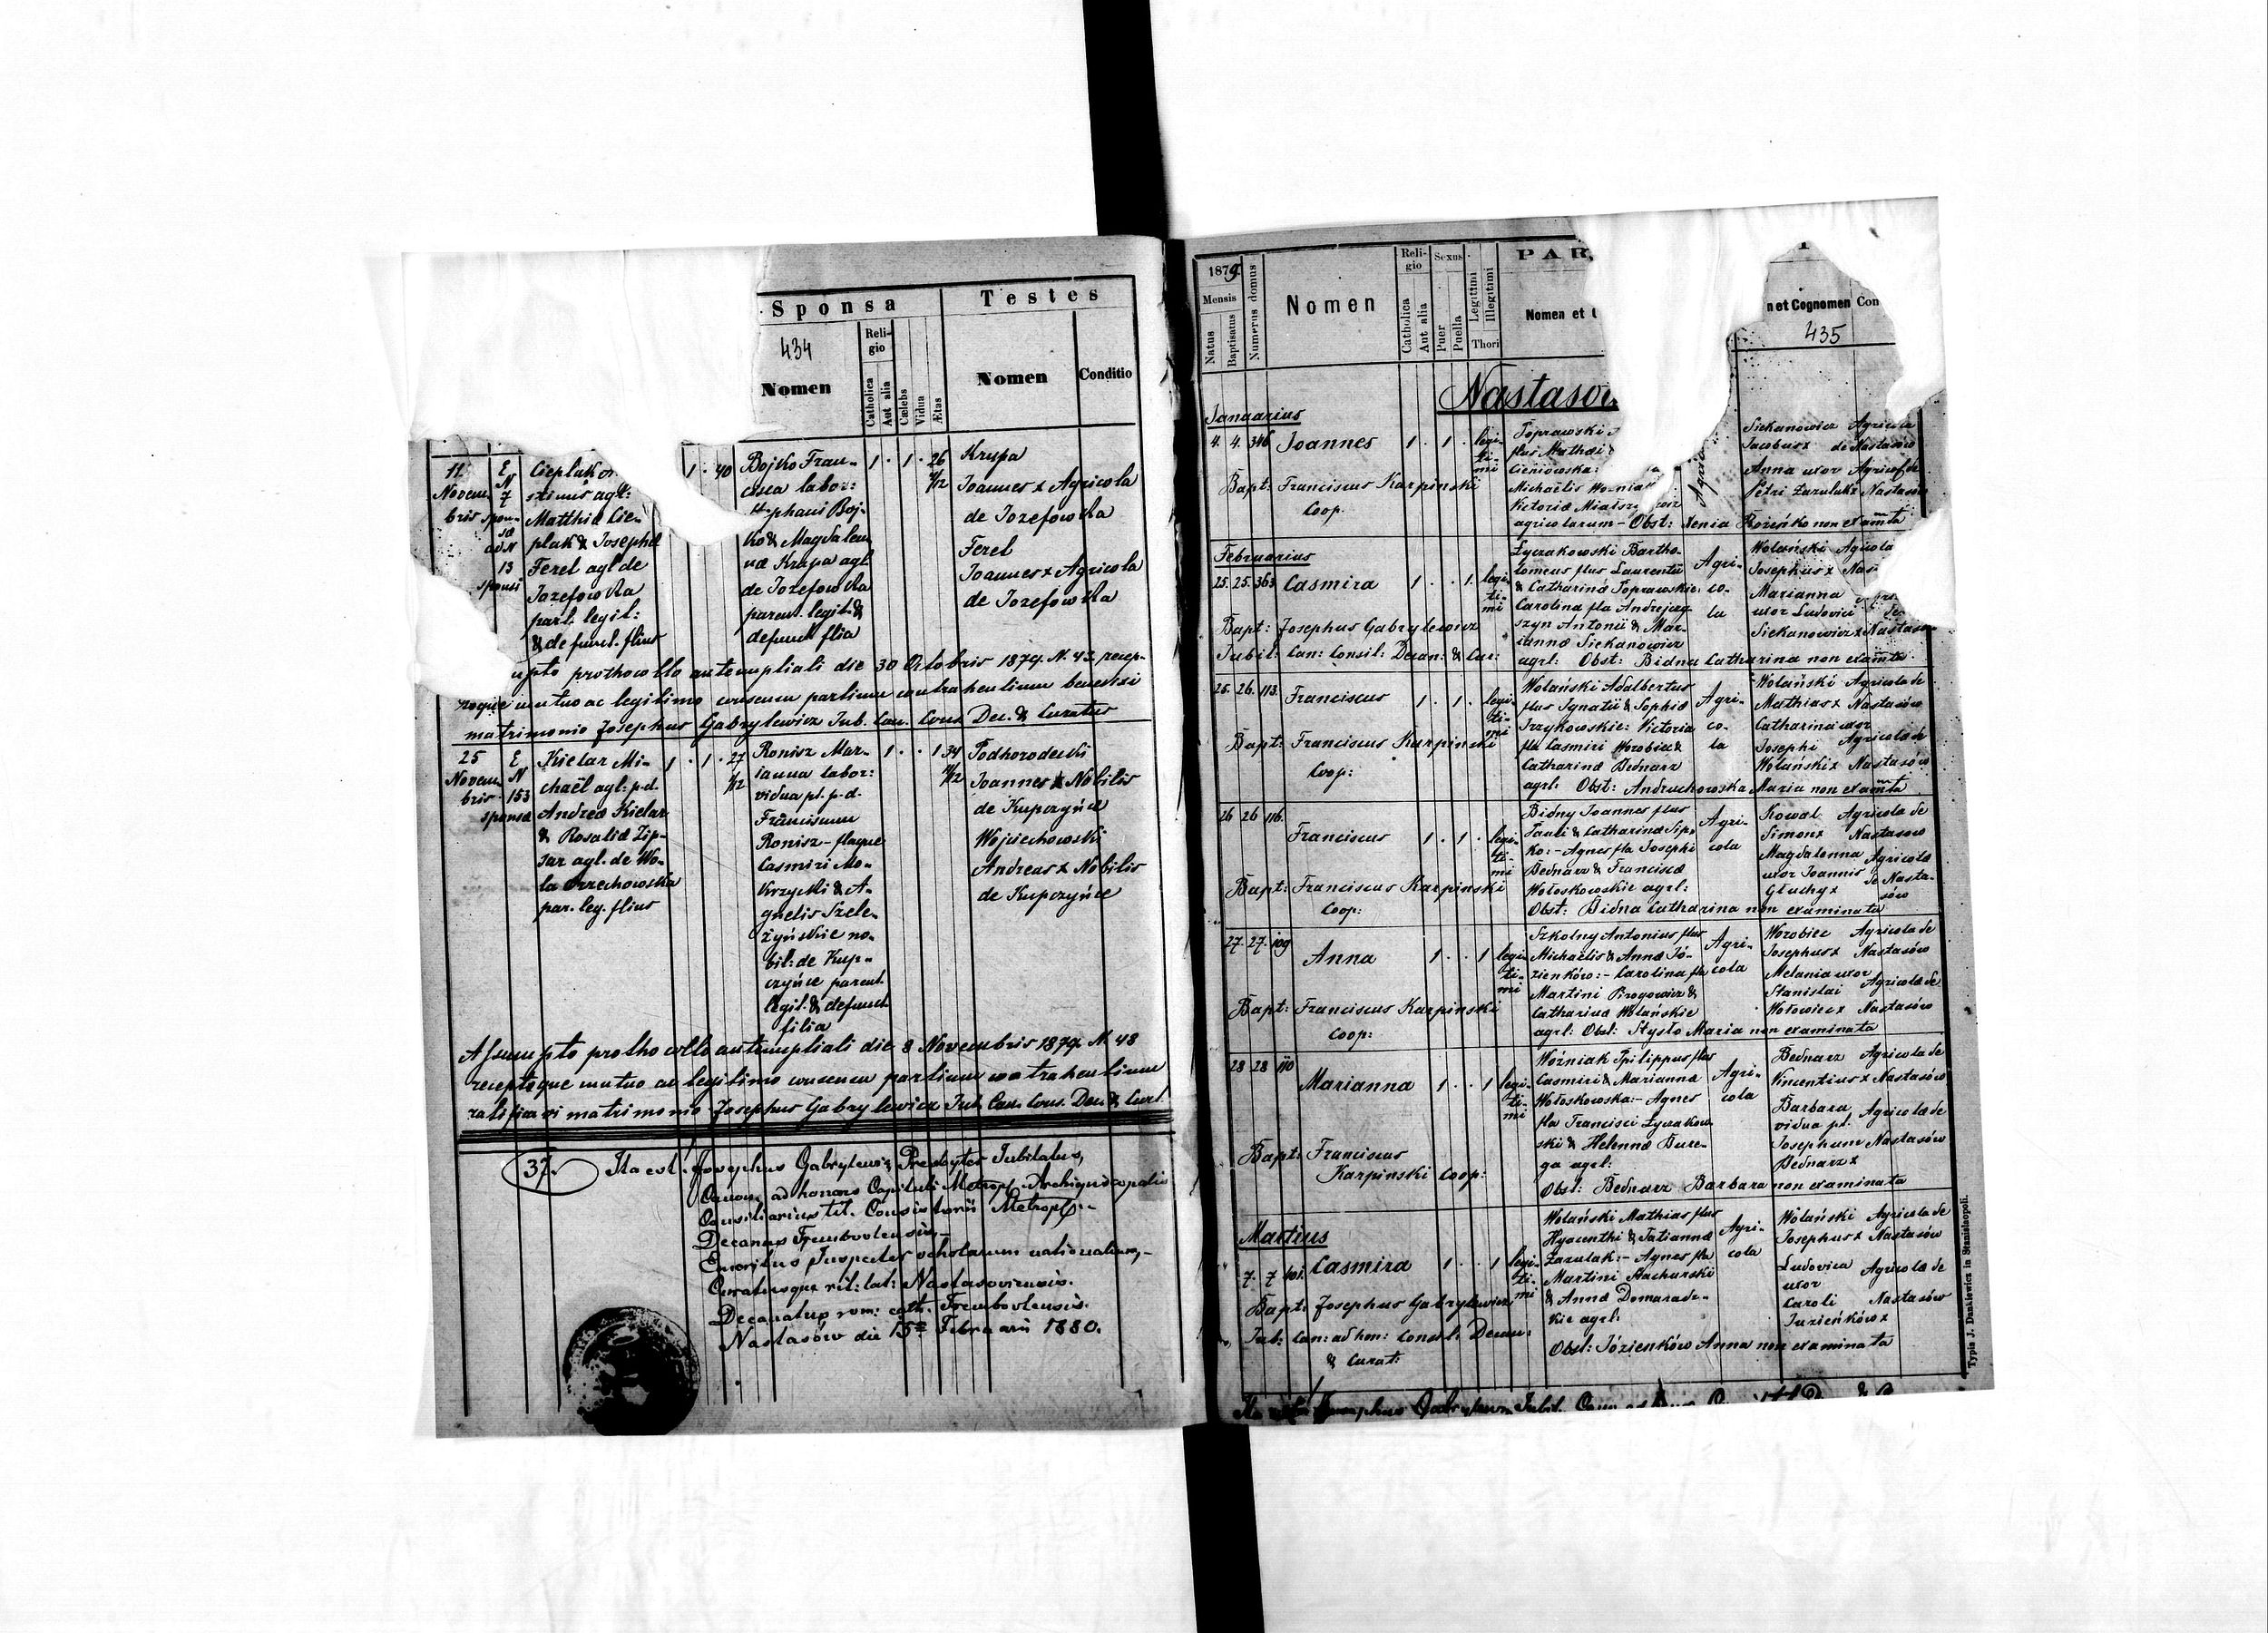 Sponsa
Testes
434
Religio
Nomen
Catholica
Aut alia
Cælebs
Vidua
Ætas
Nomen
Conditio
11
Novem
bris
E
N
7
spon-
sa
ad N
13
sponsi
Cieplak
stinus agl:
Matthiæ Cie-
plak & Josephæ
Ferel agl de
Jozefowka
part. legit:
& defunct. flius
1 · 40
Bojko Fran-
cisca labor:
Stephani Boj-
ko & Magdalen
næ Krupa agl.
de Jozefowka
parent. legit. &
defunct flia
1 · 1 · 26
Krupa
Joannes x Agricola
de Jozefowka
Ferel
Joannes x Agricola
de Jozefowka
prothocollo antenupliali die 30 Octobris 1879 N. 43. recep-
toque mutuo ac legitimo consensu partium contrahentium benedixi
matrimonio Josephus Gabrylewicz Jub. Can. Cons. Dec. & Curatus
25
Novem
bris
E
N
153
sponsæ
Kielar Mi-
chaël agl: p.d.
Andreæ Kielar
& Rosaliæ Zip-
sar agl. de Wo-
la Orzechowska
par. leg. flius
1 · 1 · 27
Ronisz Mar-
ianna labor:
vidua pt. p. d.
Franciscum
Ronisz - flaque
Casmiri Mo-
krzycki & A-
gnetis Szele-
żyńskie no-
bil: de Kup-
czyńce parent.
legit. & defunct.
filia
1 · · 1 34
Podhorodecki
Joannes x Nobilis
de Kupczyńce
Wojciechowski
Andreas x Nobilis
de Kupczyńce
Assumpto prothocollo antenupliali die 8 Novembris 1879 N. 48
receptoque mutuo ac legitimo consensu partium contrahentium
ratificavi matrimonio Josephus Gabrylewicz Jub. Can. Cons. Dec. & Curt.
37.
Ita est. Josephus Gabrylewicz Presbyter Jubilatus,
Canon. ad honores Capituli Metropl. Archiepiscopalis
Consiliarius tit. Consistorii Metropl.
Decanus Trembovlensis,
Emeritus Inspector scholarum nationalium,
Curatusque rit: lat: Nastasoviensis.
Decanatus rom: cath. Trembovlensis.
Nastasów die 15 Februarii 1880.
1879.
Mensis
Natus
Baptisatus
Numerus domus
Nomen
Religio
Catholica
Aut alia
Sexus
Puer
Puella
Legitimi
Illegitimi
Thori
PAR
Nomen et
n et Cognomen
Con
435
Nastasow
Januarius
4. 4. 346 Joannes 1 · 1 · legi-
ti-
mi
Toprawski
flius Mathæi
Cieniowska:
Michaëlis Woźniak
Victoriæ
agricolarum - Obst: Xenia Rożeńko non examta
Siekanowicz Agricola
Jacobus x de Nastasów
Anna uxor Agricol de
Petri Zazulak x Nastasów
Bapt: Franciscus Karpinski
Coop.
Februarius
25. 25. 363 Casmira 1 · · 1. legi-
ti-
mi
Łyczakowski Bartho-
lomeus flus Laurentii
& Catharinæ Toprawskie:
Carolina fla Andrejczy-
szyn Antonii & Mar-
iannæ Siekanowicz
agrl: Obst: Bidna Catharina non examta
Agri-
co-
la
Wolański Agricola
Josephus x Nas
Marianna
uxor Ludovici
Siekanowicz x Nastasów
Bapt: Josephus Gabrylewicz
Jubil: Can: Consil: Decan: & Cur:
25. 26. 113. Franciscus 1 · 1 · legi-
ti-
mi
Wolański Adalbertus
flus Ignatii & Sophiæ
Trzykowskie: Victoria
fla Casmiri Worobiec &
Catharinæ Bednarz
agrl: Obst: Andruchowska Maria non examta
Agri-
co-
la
Wolański Agricola de
Mathias x Nastasów
Catharina uxor
Josephi Agricola de
Wolański x Nastasów
Bapt: Franciscus Karpinski
Coop:
26 26 116. Franciscus 1 · 1 · legi-
ti-
mi
Bidny Joannes flus
Pauli & Catharinæ Sip-
ko: - Agnes fla Josephi
Bednarz & Franciscæ
Wołoskowskie agrl:
Obst: Bidna Catharina non examinata
Agri-
cola
Kowal Agricola de
Simon x Nastasow
Magdalenna Agricolæ
uxor Joannis de Nasta-
Głuchy x sów
Bapt: Franciscus Karpinski
Coop:
27. 27. 109 Anna 1 · · 1 legi-
ti-
mi
Szkolny Antonius flus
Michaëlis & Annæ Jó-
zienków: - Carolina fla
Martini Pirogowicz &
Catharinæ Wolańskie
agrl: Obst: Stysło Maria non examinata
Agri-
cola
Worobiec Agricola de
Josephus x Nastasów
Melania uxor
Stanislai Agricolæ de
Wołowiec x Nastasów
Bapt: Franciscus Karpinski
Coop:
28 28 110 Marianna 1 · · 1 legi-
ti-
mi
Woźniak Philippus flus
Casmiri & Mariannæ
Wołoskowska: - Agnes
fla Francisci Łyczakow-
ski & Helennæ Dure-
ga agrl:
Obst: Bednarz Barbara non examinata
Agri-
cola
Bednarz Agricola de
Vincentius x Nastasów
Barbara
vidua pt. Agricolæ de
Josephum Nastasów
Bednarz x
Bapt: Franciscus
Karpinski Coop:
Martius
7. 7 401. Casmira 1 · · 1 legi-
ti-
mi
Wolański Mathias flus
Hyacinthi & Tatiannæ
Zazulak: - Agnes fla
Martini Stacharski
& Annæ Domarade-
kie agrl:
Obst: Józienków Anna non examinata
Agri-
cola
Wolański Agricola de
Josephus x Nastasów
Ludovica
uxor Agricolæ de
Caroli Nastasów
Juzieńków x
Bapt: Josephus Gabrylewicz
Jub: Can: ad hon: Consil: Decan:
& Curat:
Typis J. Dankiewicz in Stanislaopoli.